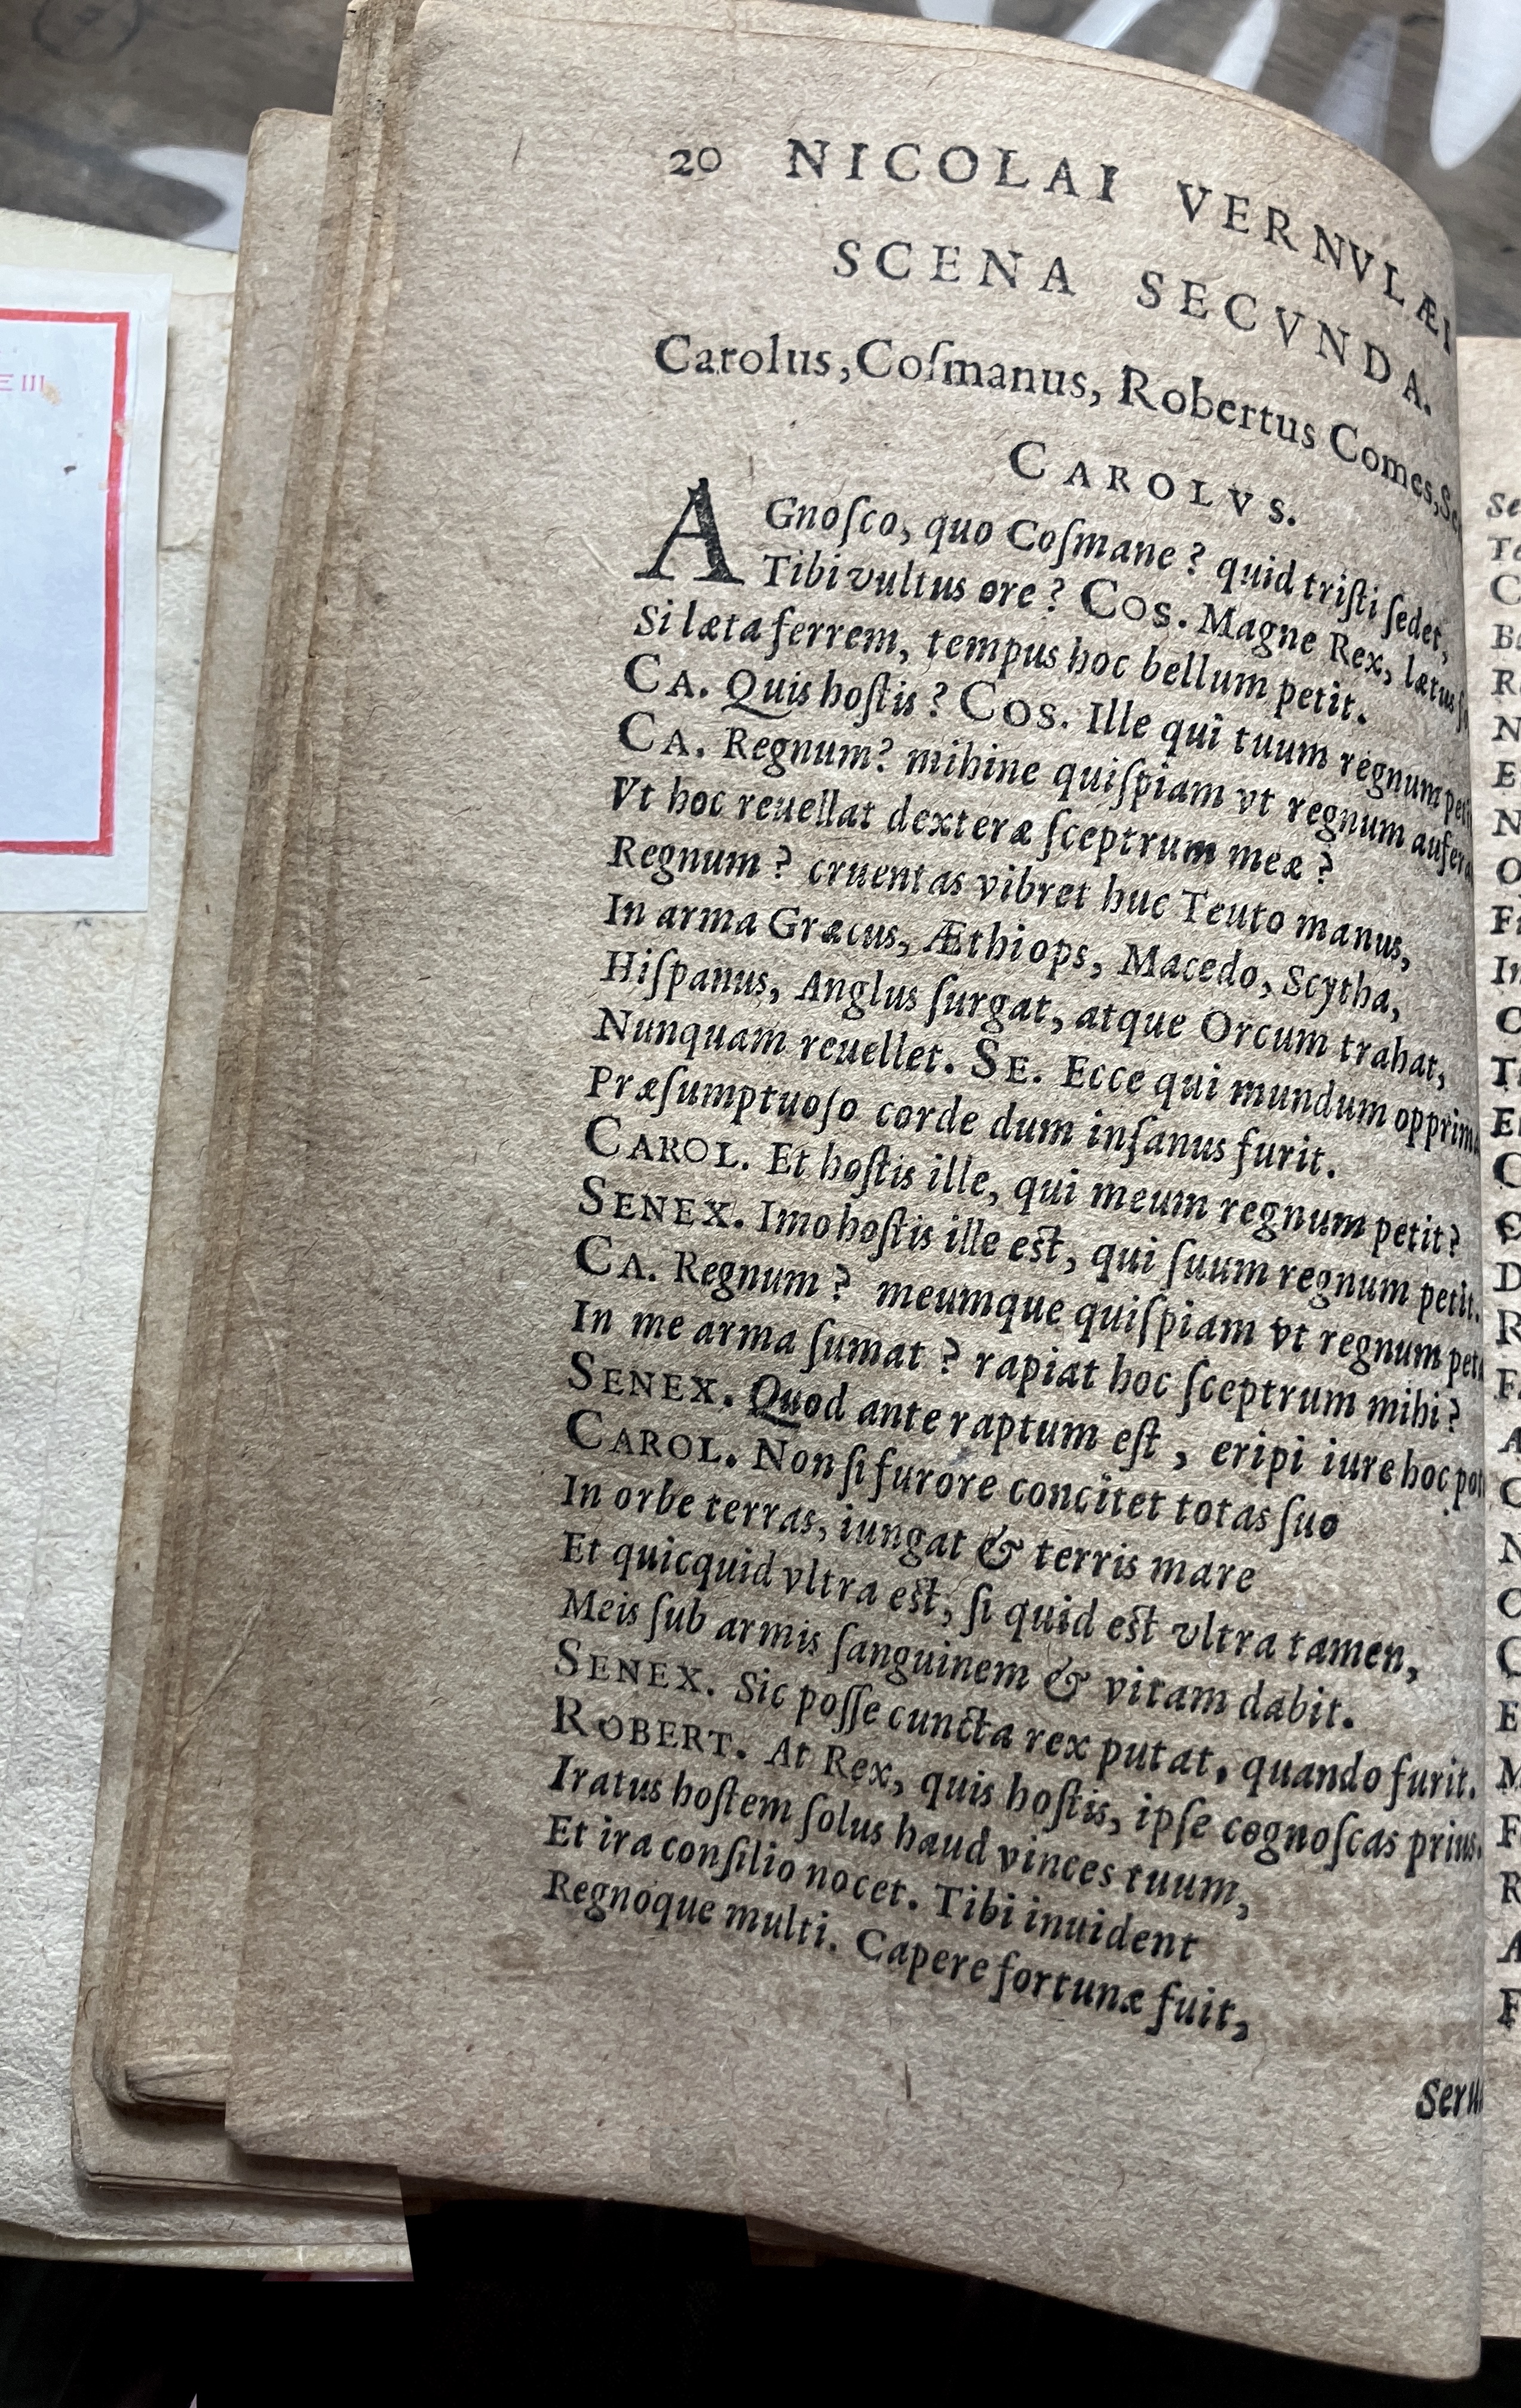 20 NICOLAI VERNVLÆI
SCENA SECVNDA.
Carolus, Coſmanus, Robertus Comes,
CAROLVS.
AGnoſco, quo Coſmane? quid triſti ſedet,
Tibi vultus ore? COS. Magne Rex, lætus
Si læta ferrem, tempus hoc bellum petit.
CA. Quis hoſtis? COS. Ille qui tuum regnum
CA. Regnum? mihine quiſpiam vt regnum
Vt hoc reuellat dexteræ ſceptrum meæ?
Regnum? cruentas vibret huc Teuto manus,
In arma Græcus, Æthiops, Macedo, Scytha,
Hiſpanus, Anglus ſurgat, atque Orcum trahat,
Nunquam reuellet. SE. Ecce qui mundum
Præſumptuoſo corde dum inſanus furit.
CAROL. Et hoſtis ille, qui meum regnum petit?
SENEX. Imo hoſtis ille eſt, qui ſuum regnum petit.
CA. Regnum? meumque quiſpiam vt regnum
In me arma ſumat? rapiat hoc ſceptrum mihi?
SENEX. Quod ante raptum eſt, eripi iure hoc
CAROL. Non ſi furore concitet totas ſuo
In orbe terras, iungat & terris mare
Et quicquid vltra eſt, ſi quid eſt vltra tamen,
Meis ſub armis ſanguinem & vitam dabit.
SENEX. Sic poſſe cuncta rex putat, quando furit.
ROBERT. At Rex, quis hoſtis, ipſe cognoſcas prius.
Iratus hoſtem ſolus haud vinces tuum,
Et ira conſilio nocet. Tibi inuident
Regnoque multi. Capere fortunæ fuit,